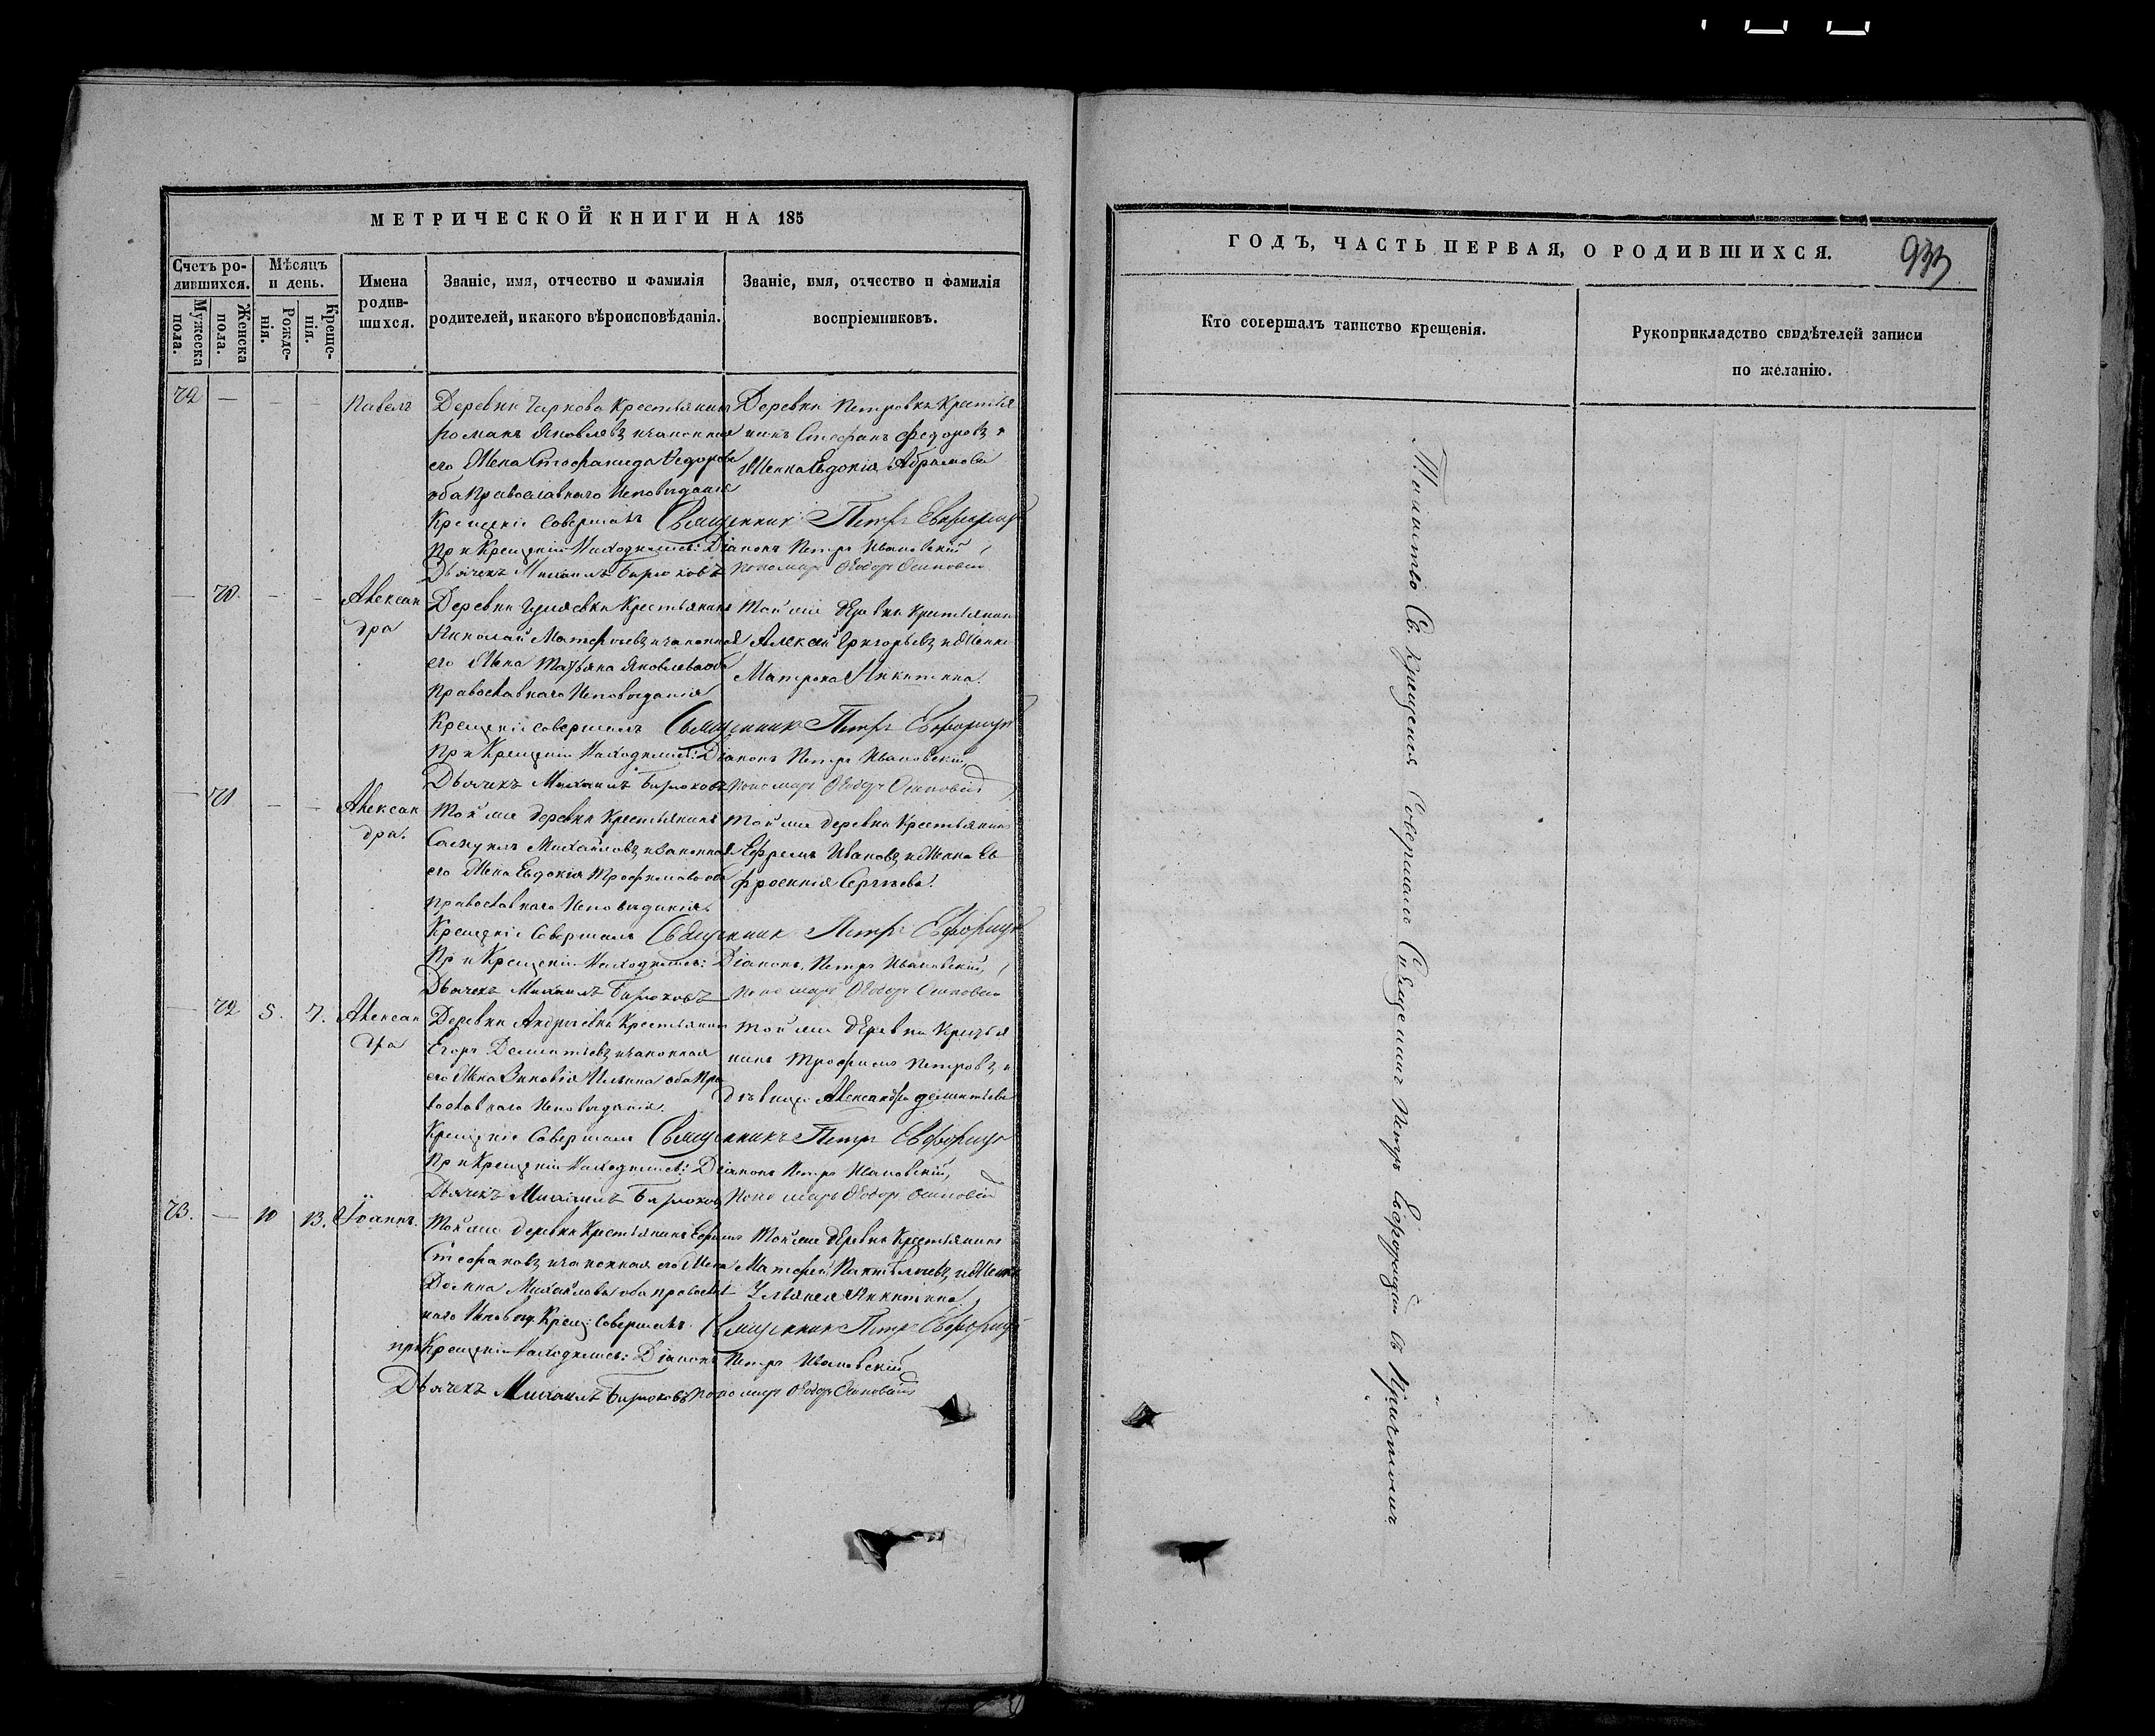 МЕТРИЧЕСКОЙ КНИГИ НА 185
Счетъ ро-
дившихся.
Мужеска
пола.
Женска
пола.
Мѣсяцъ
и день.
Рожде-
нія.
Креще-
нія.
Имена
родив-
шихся.
Званіе, имя, отчество и фамилія
родителей, и какого вѣроисповѣданія.
Званіе, имя, отчество и фамилія
воспріемниковъ.
72 — - -
Павелъ
Деревни Чиркова Крестьянинъ
Романъ Яковлевъ и законная
его Жена Стефанида Федорова
оба Православнаго Исповѣданія
Деревни Петровки Крестья
нинъ Стефанъ Федоровъ и
Женка Евдокія Абрамова
Крещеніе Совершалъ Священникъ Петръ
При Крещеніи Находились: Діаконъ Петръ Ивановскій,
Дьячекъ Михаилъ Бирюковъ Пономарь Ѳедоръ
— 70. - -
Алексан
дра
Деревни Гуляевки Крестьянинъ
Николай Матфѣевъ и законная
его Жена Татьяна Яковлева оба
Православнаго Исповѣданія
Той же деревни Крестьянинъ
Алексѣй Григорьевъ и Женка
Матрона Никитина.
Крещеніе Совершалъ Священникъ Петръ
При Крещеніи Находились: Діаконъ Петръ Ивановскій,
Дьячекъ Михаилъ Бирюковъ Пономарь Ѳедоръ
— 71 - -
Алексан
дра.
Той же деревни Крестьянинъ
Самуилъ Михайловъ и законная
его Жена Евдокія Трофимова оба
Православнаго Исповѣданія.
Той же деревни Крестьянинъ
Ефремъ Ивановъ и Женка Ев
фросинія Сергѣева.
Крещеніе Совершалъ Священникъ Петръ
При Крещеніи Находились: Діаконъ Петръ Ивановскій,
Дьячекъ Михаилъ Бирюковъ Пономарь Ѳедоръ
— 72 5. 7.
Алексан
дра
Деревни Андреевки Крестьянинъ
Егоръ Дементьевъ и законная
его Жена Зиновія Ильина оба Пра
вославнаго Исповѣданія.
Той же деревни Крестья
нинъ Трофимъ Петровъ и
дѣвица Александра Дементьева
Крещеніе Совершалъ Священникъ Петръ
При Крещеніи Находились: Діаконъ Петръ Ивановскій,
Дьячекъ Михаилъ Бирюковъ Пономарь Ѳедоръ
73. — 10 13.
Іоаннъ.
Той же деревни Крестьянинъ
Стефановъ и законная его Жена
Домна Михайлова оба православ
наго Исповѣд. Крещ: Совершалъ Священникъ Петръ
Той же деревни Крестьянинъ
Матфей и Женка
Ульянея Никитина
при Крещеніи Находились: Діаконъ Петръ Ивановскій
Дьячекъ Михаилъ Бирюковъ Пономарь Ѳедоръ
ГОДЪ, ЧАСТЬ ПЕРВАЯ, О РОДИВШИХСЯ.
933
Кто совершалъ таинство крещенія.
Рукоприкладство свидѣтелей записи
по желанію.
Таинство Св. Крещенія Совершалъ Священникъ Петръ съ Причтомъ